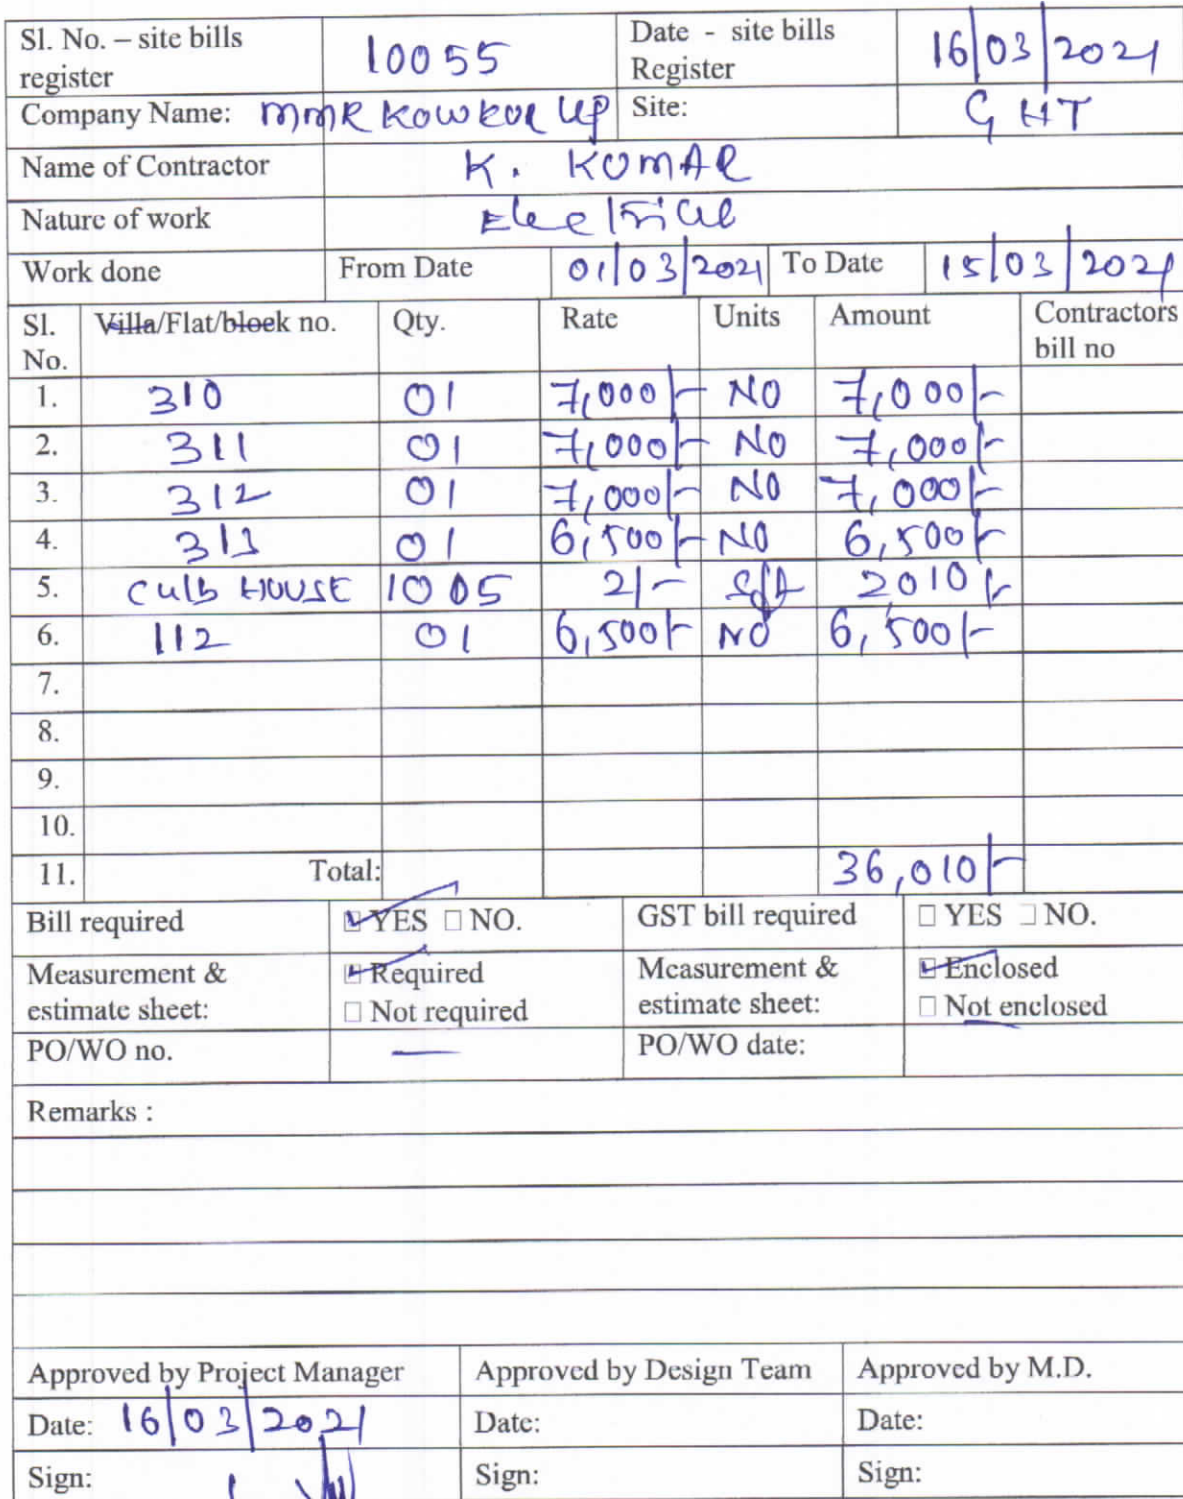 Sl. No. – site bills register 10055 Date - site bills Register 16/03/2021
Company Name: MMR KOWKUR LLP Site: GHT
Name of Contractor K. KUMAR
Nature of work Electrical
Work done From Date 01/03/2021 To Date 15/03/2021
Sl. No. Villa/Flat/block no. Qty. Rate Units Amount Contractors bill no
1. 310 01 7,000/- NO 7,000/-
2. 311 01 7,000/- NO 7,000/-
3. 312 01 7,000/- NO 7,000/-
4. 313 01 6,500/- NO 6,500/-
5. CULB HOUSE 1005 2/- Sft 2010/-
6. 112 01 6,500/- NO 6,500/-
7.
8.
9.
10.
11. Total: 36,010/-
Bill required YES NO. GST bill required YES NO.
Measurement & estimate sheet: Required Not required Measurement & estimate sheet: Enclosed Not enclosed
PO/WO no. — PO/WO date:
Remarks :
Approved by Project Manager Approved by Design Team Approved by M.D.
Date: 16/03/2021 Date: Date:
Sign: Sign: Sign: